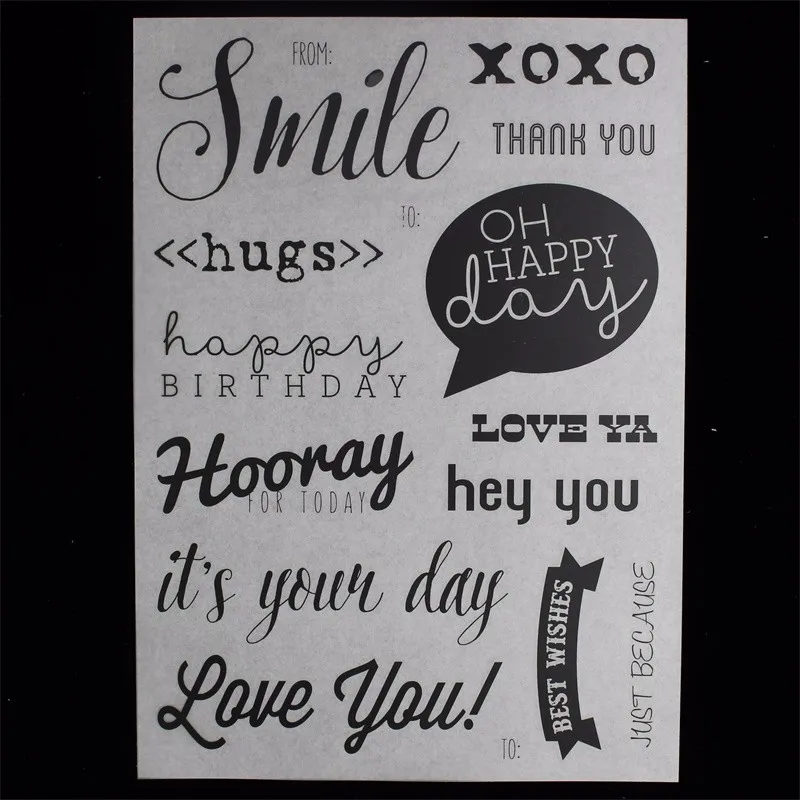 FROM:
Smile
XOXO
THANK YOU
TO:
<<hugs>>
OH
HAPPY
day
happy
BIRTHDAY
LOVE YA
Hooray
FOR TODAY
hey you
it's your day
BEST WISHES
JUST BECAUSE
Love You!
TO: